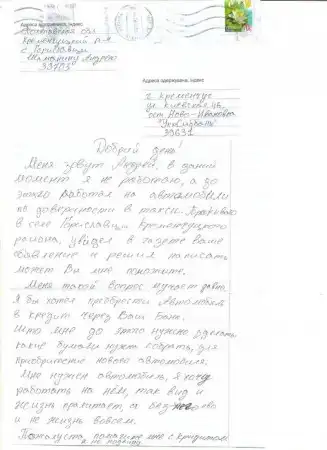 Адреса відправника, індекс
Полтавская обл.
Кременчуцкий р-н
с. Горишлавцы
Андрею
39703
Адреса одержувача, індекс
г. Кременчуг
ул. Киевская
ост. Ново-Ивановка
"УкрСиббанк"
39631
Добрый день!
Меня зовут Андрей, в данный
момент я не работаю, а до
этого работал на автомобиле
по доверенности в такси. Проживаю
в селе Горишлавцы Кременчугского
района, увидел в газете ваше
объявление и решил написать
может Вы мне поможете.
Меня такой вопрос мучает давно,
Я бы хотел преобрести Автомобиль
в кредит через Ваш Банк.
Што мне до этого нужно сделать
какие бумаги нужно собрать, для
приобритение нового автомобиля.
Мне нужен автомобиль, я хочу
работать на нём, так вид и
жизнь пролитает, а без него
и не жизнь вовсем.
Пожалуста, помогите мне с кредитом